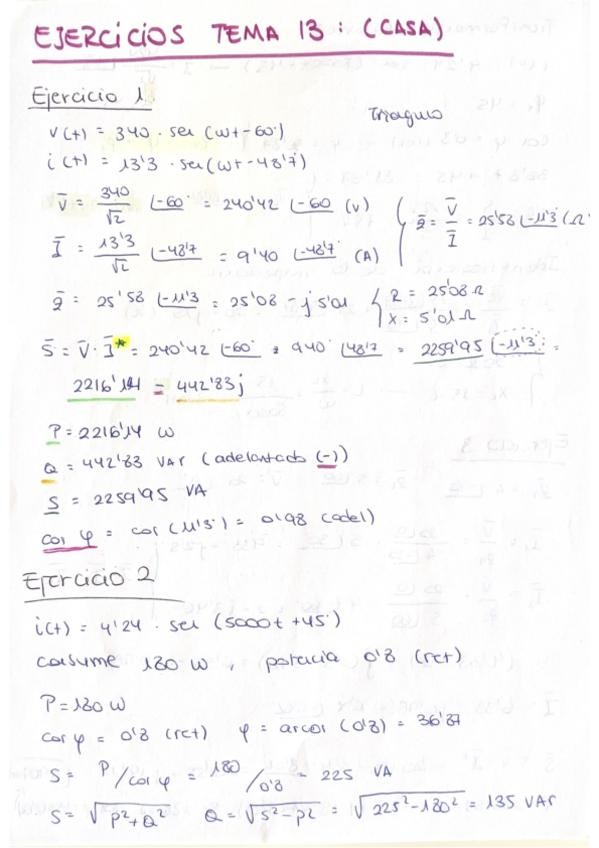 EJERCICIOS TEMA 13: (CASA)
Ejercicio 1
Triangulo
v(t) = 340 · sen (wt - 60°)
i(t) = 13'3 · sen (wt - 48'7°)
V̄ = 340/√2 ∠-60 = 240'42 ∠-60 (V)
z̄ = V̄/Ī = 25'58 ∠-11'3° (Ω
Ī = 13'3/√2 ∠-48'7 = 9'40 ∠-48'7° (A)
z̄ = 25'58 ∠-11'3 = 25'08 - j 5'01
R = 25'08 Ω
X = 5'01 Ω
S̄ = V̄ · Ī* = 240'42 ∠-60° · 940 ∠48'7 = 2259'95 ∠-11'3° =
2216'14 - 442'83j
P = 2216'14 W
Q = 442'83 VAr (adelantado (-))
S = 2259'95 VA
cos φ = cos (11'3°) = 0'98 (adel)
Ejercicio 2
i(t) = 4'24 · sen (5000t + 45°)
consume 180 W, potencia 0'8 (ret)
P = 180 W
cos φ = 0'8 (ret) φ = arcos (0'8) = 36'87
S = P/cos φ = 180/0'8 = 225 VA
S = √P²+Q² Q = √S²-P² = √225²-180² = 135 VAr